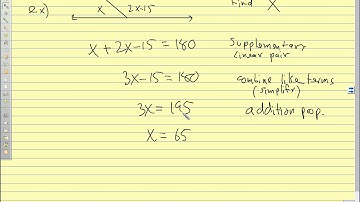 ex) x 2x-15 Find X
x + 2x-15 = 180 Supplementary
linear pair
3x-15 = 180 combine like terms
(simplify)
3x = 195 addition prop.
x = 65